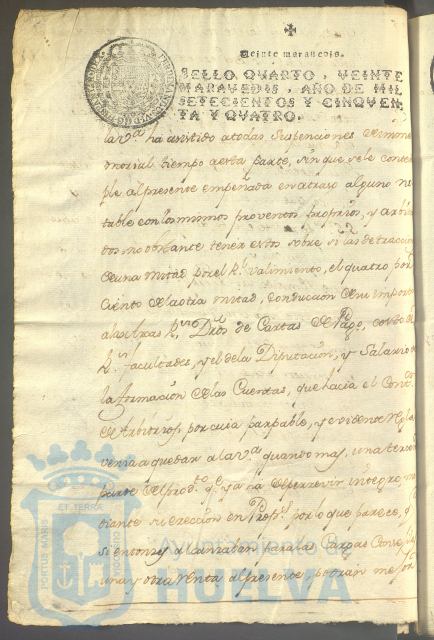 Veinte maravedis.
SELLO QVARTO, VEINTE
MARAVEDIS, AÑO DE MIL
SETECIENTOS Y CINQVEN-
TA Y QVATRO.
la V.ª ha asistido a todas Suspenciones de inme
morial tiempo a esta parte, sin que se le contem
ple al presente empeñada en atraso alguno no
table con los mismos proventos proprios, y arbi
tios no obstante tener estos sobre si las detracci
de una mitad por el R.l valimiento, el quatro por
Ciento de la otra mitad, conduccion de su import
a las Arcas R.s Dros de Cartas de Pago, costo de
R.s facultades, y el de la Diputacion, y Salario de
la formacion de las Cuentas, que hacia el Cont.or
de Arbitrios, por cuia palpable, y evidente
venia a quedar a la V.ª quando mas, una tercera
parte del prod.to q.e ya ha de percevir integro, me
diante su ereccion en Prop.s por lo que parece, q
si entonces alcanzaban para las Cargas
una y otra Renta al presente podran mejor
PORTUS MARIS
ET TERRAE CUSTODIA
Ayuntamiento de
HUELVA